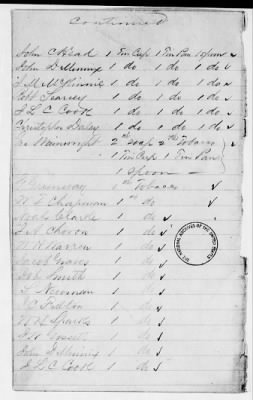 Continued
John Mead 1 Tin Cup 1 Tin Pan 1 spoon
John D Mimix 1 do 1 do 1 do
J M McKinnie 1 do 1 do 1 do
Robt Searcy 1 do 1 do 1 do
J L C Cook 1 do 1 do 1 do
Christopher Daley 1 do 1 do 1 do
Geo Wainwright 2 lb soap 2 lb Tobacco
1 Tin Cup 1 Tin Pan
1 spoon
1 lb Tobacco
W T Chapman 1 lb do
Noah Clarke 1 do
1 do
W R Warren 1 do
Jacob Graves 1 do
Smith 1 do
Newman 1 do
J C Fulton 1 do
W H Sparks 1 do
1 do
John D Mimix 1 do
J L C Cook 1 do
THE NATIONAL ARCHIVES OF THE UNITED STATES